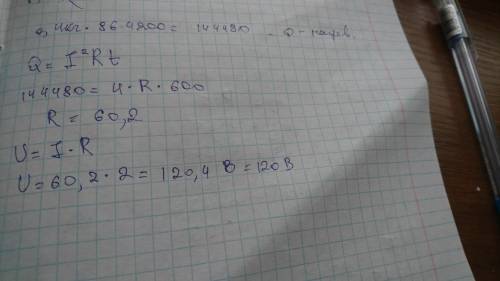 0,4кг · 86 · 4200 = 144480 - Q - нагрв.
Q = I²Rt
144480 = 4 · R · 600
R = 60,2
U = I · R
U = 60,2 · 2 = 120,4 В = 120В